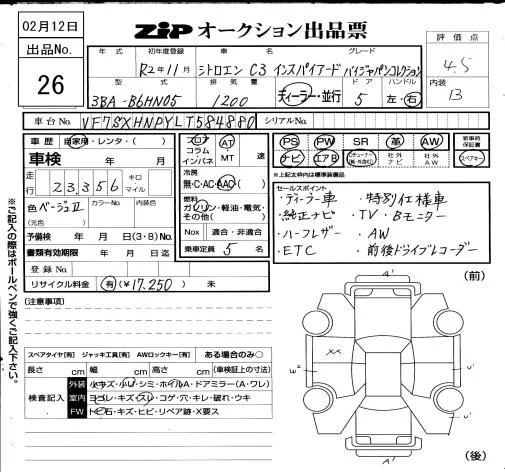 02月12日
ZIP オークション出品票
出品No.
26
評価点
4.5
内装
B
年式 初年度登録 車名 グレード
R2年11月 シトロエン C3 インスパイアード バイジャパンコレクション
型式 排気量 ドア ハンドル
3BA-B6HN05 1200 ディーラー・並行 5 左・右
車台No. VF7SXHNPYLT584880 シリアルNo.
車歴 自家用・レンタ・( )
車検 年 月
走行 23356 キロ マイル
色 ベージュⅡ カラーNo. 内装色
(元色 )
予備検 年 月 日(3・8)No.
書類有効期限 年 月 日迄
登録No.
リサイクル料金 有(¥17.250) 未
フロア コラム インパネ AT MT 速
冷房
無・C・AC・AAC( )
燃料
ガソリン・軽油・電気・その他( )
Nox 適合・非適合
乗車定員 5 名
PS PW SR 革 AW 新車時保証書
ナビ エアB 社外ナビ 社外AW スペアキー
※上記太枠内は標準装備品
セールスポイント
・ディーラー車 ・特別仕様車
・純正ナビ ・TV・Bモニター
・ハーフレザー ・AW
・ETC ・前後ドライブレコーダー
※ご記入の際はボールペンで強くご記入下さい。
(注意事項)
スペアタイヤ[有] ジャッキ工具[有] AWロックキー[有] ある場合のみ○
長さ cm 幅 cm 高さ cm (車検証上の寸法)
検査記入
外装 小キズ・小U・シミ・ホイルA・ドアミラー(A・ワレ)
室内 ヨゴレ・キズ・スレ・コゲ・穴・キレ・破れ・ウキ
FW トビ石・キズ・ヒビ・リペア跡・X要ス
(前)
A'
××
E2
U'
U'
A'
(後)